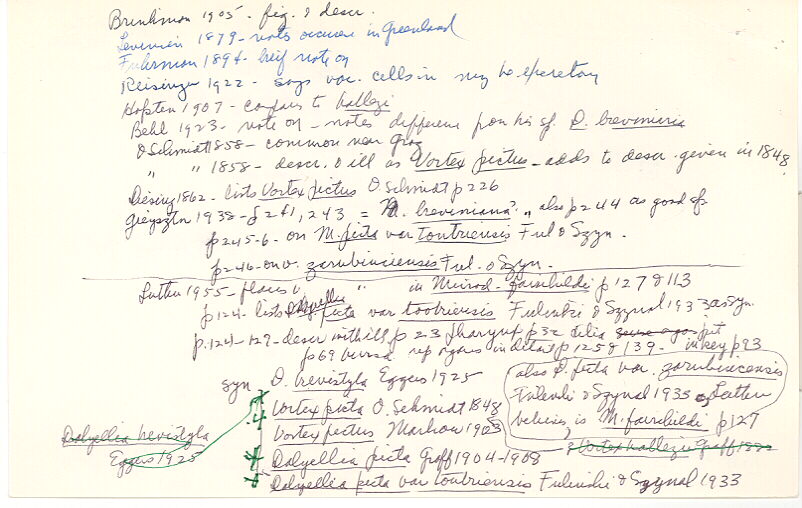 Brinkman 1905 - fig. & descr.
Levinsen 1879 - notes occurence in Greenland
Fuhrman 1894 - breif note on
Reisinger 1922 - says vac. cells in may be excretory
Hofsten 1907 - compares to hallezi
Behl 1923 - note on - notes difference from his sp. D. brevimana
O Schmidt 1858 - common near Graz
" " 1858 - descr. & ill as Vortex pictus - adds to descr. given in 1848
Diesing 1862 - lists Vortex pictus O. Schmidt p 226
Gieysztor 1938 - p 241, 243 = M. brevimana? " also p 244 as good sp
p 245-6 - on M. picta var tootriensis Ful & Szyn.
p 246 - on v. zarubinciensis Ful. & Szyn.
Luther 1955 - places v. " in Microd. fairchildi p 127 & 113
p 124 - lists Dalyellia picta var tootriensis Fulinski & Szynal 1933 as syn.
p. 124-129 - descr with ill p 23 pharynx p 32 cilia pit
p 69 bursa rep organs in detail p 125 & 139 - in key p 93
syn D. brevistyla Eggers 1925
Vortex picta O. Schmidt 1848
Vortex pictus Markow 1903
Dalyellia picta Graff 1904-1908
Dalyellia picta var tootriensis Fulinski & Szynal 1933
also D. picta var. zarubincensis
Fulinski & Szynal 1933 Luther
believes is M. fairchildi p 127
? Vortex hallezii Graff 1882
Dalyellia brevistyla
Eggers 1925